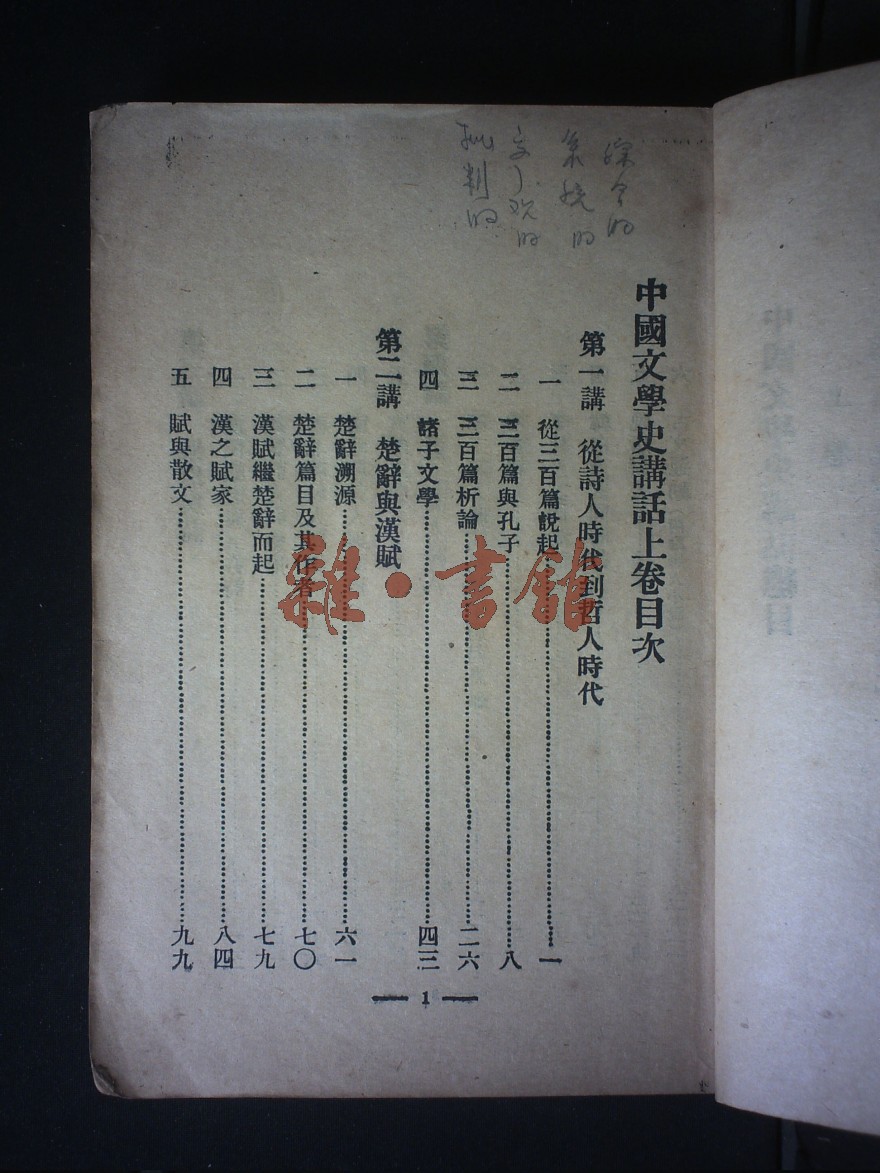 綜合的
系統的
客觀的
批判的
中國文學史講話上卷目次
第一講　從詩人時代到哲人時代
一　從三百篇說起……一
二　三百篇與孔子……八
三　三百篇析論……二六
四　諸子文學……四三
第二講　楚辭與漢賦
一　楚辭溯源……六一
二　楚辭篇目及其作者……七〇
三　漢賦繼楚辭而起……七九
四　漢之賦家……八四
五　賦與散文……九九
— 1 —
雜·書館